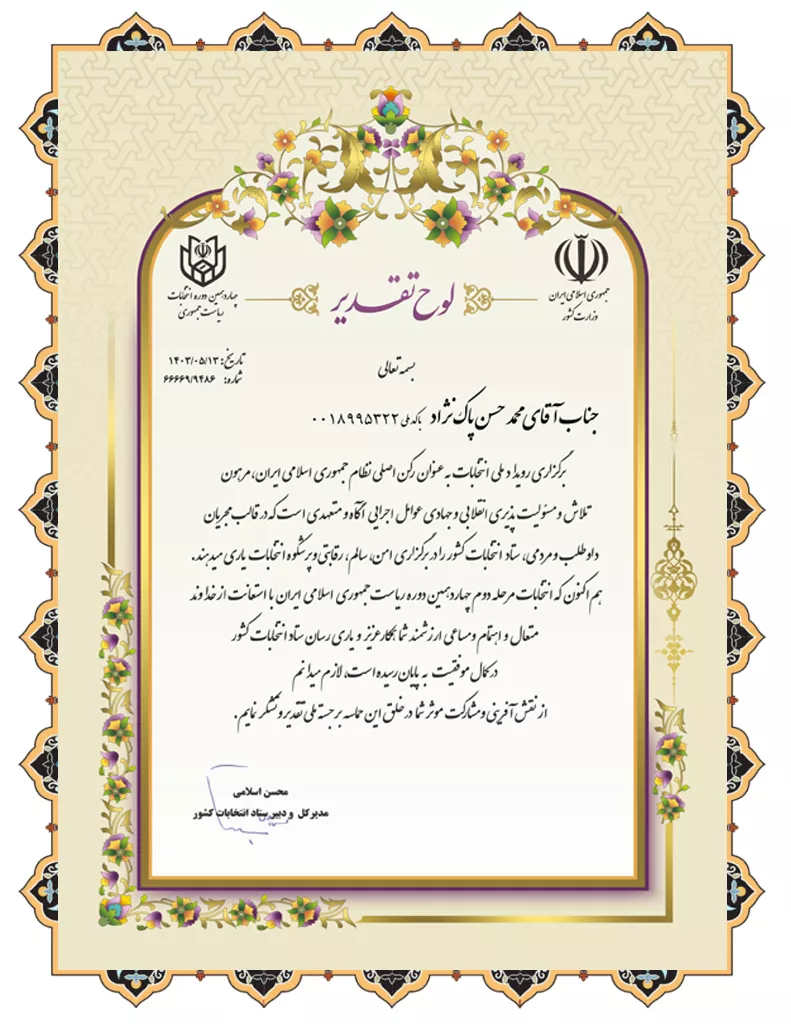 جمهوری اسلامی ایران
وزارت کشور
لوح تقدیر
چهاردهمین دوره انتخابات
ریاست جمهوری
تاریخ: ۱۴۰۳/۰۵/۱۳
شماره: ۶۶۶۶۹/۹۴۸۶
بسمه تعالی
جناب آقای محمد حسن پاک نژاد با کد ملی ۰۰۱۸۹۹۵۳۲۲
برگزاری رویداد ملی انتخابات به عنوان رکن اصلی نظام جمهوری اسلامی ایران، مرهون
تلاش و مسئولیت پذیری انقلابی و جهادی عوامل اجرایی آگاه و متعهدی است که در قالب مجریان
داوطلب و مردمی، ستاد انتخابات کشور را در برگزاری امن، سالم، رقابتی و پرشکوه انتخابات یاری میدهند.
هم اکنون که انتخابات مرحله دوم چهاردهمین دوره ریاست جمهوری اسلامی ایران با استعانت از خداوند
متعال و اهتمام و مساعی ارزشمند شما همکار عزیز و یاری رسان ستاد انتخابات کشور
در کمال موفقیت به پایان رسیده است، لازم میدانم
از نقش آفرینی و مشارکت موثر شما در خلق این حماسه برجسته ملی تقدیر و تشکر نمایم.
محسن اسلامی
مدیرکل و دبیر ستاد انتخابات کشور